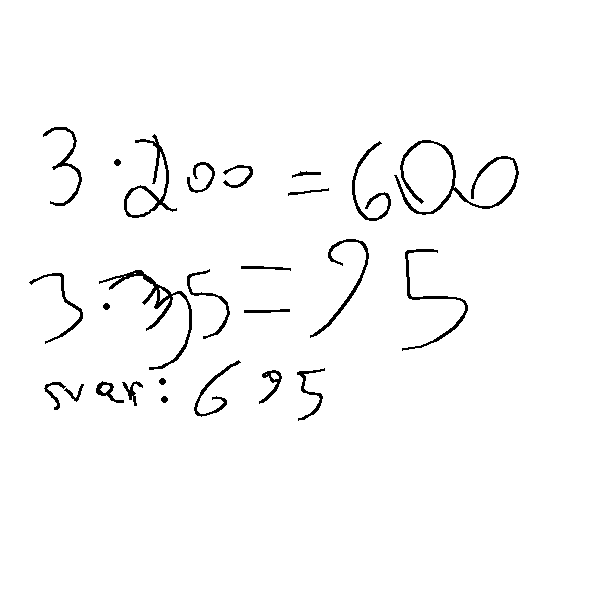 3 · 200 = 600
3 · 35 = 95
svar: 695